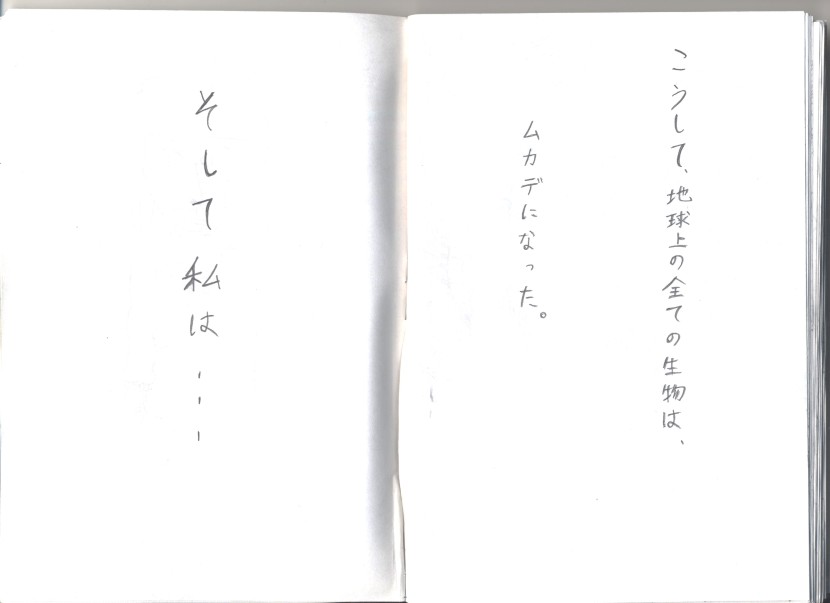 こうして、地球上の全ての生物は、
ムカデになった。
そして私は…